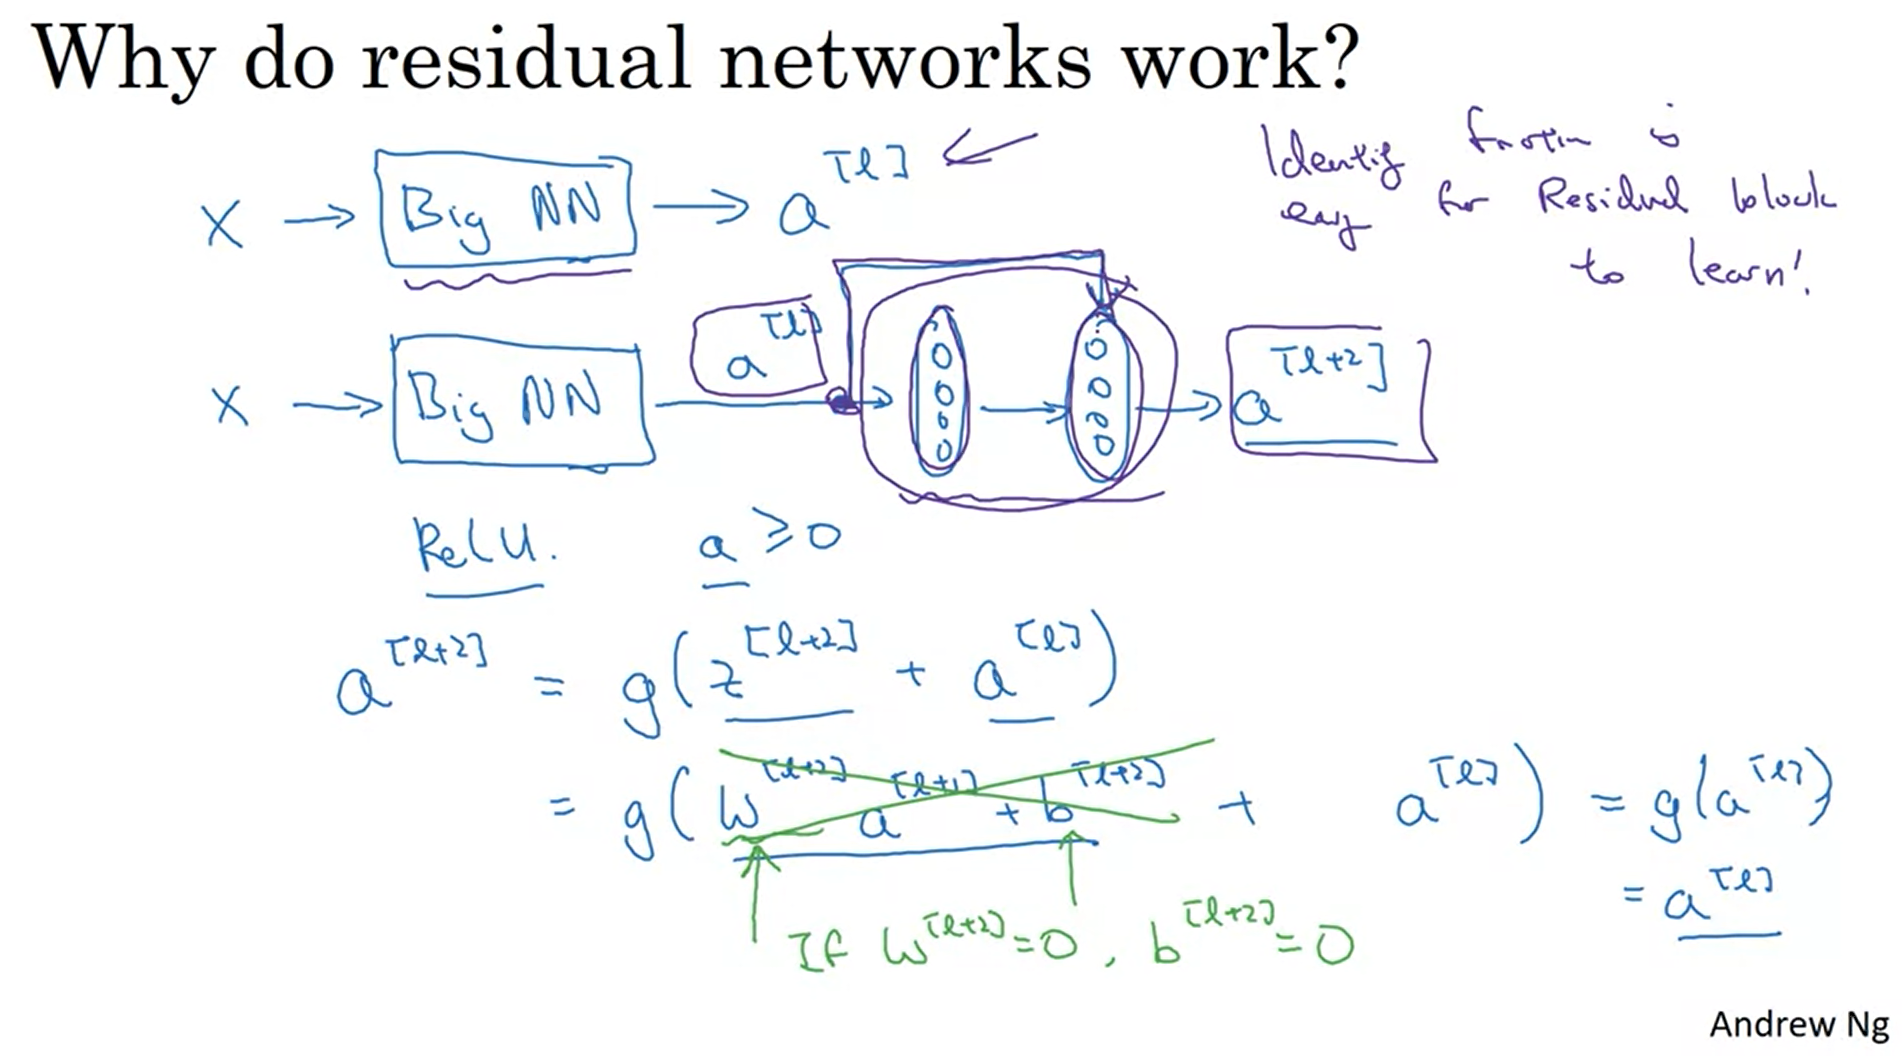 Why do residual networks work?
Identity function is
easy for Residual block
to learn!
X → Big NN → a^[l]
X → Big NN a^[l] → a^[l+2]
ReLU. a ≥ 0
a^[l+2] = g(z^[l+2] + a^[l])
= g(W^[l+2] a^[l+1] + b^[l+2] + a^[l]) = g(a^[l])
= a^[l]
If W^[l+2] = 0, b^[l+2] = 0
Andrew Ng